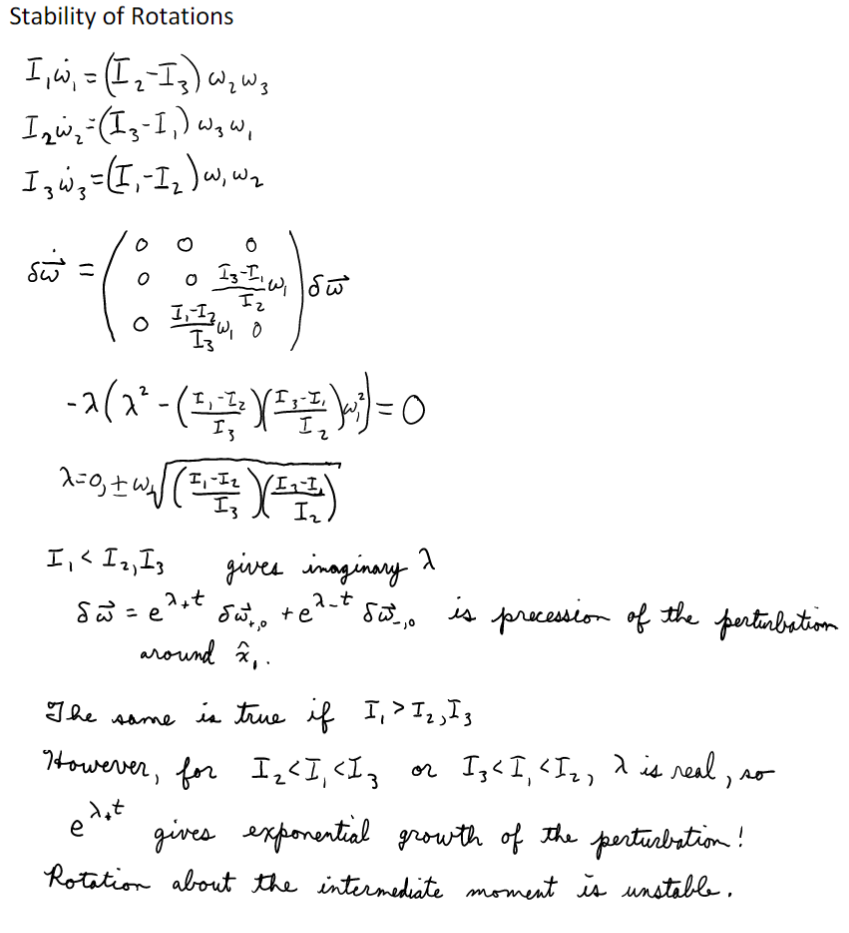 Stability of Rotations
I₁ω̇₁ = (I₂-I₃) ω₂ω₃
I₂ω̇₂ = (I₃-I₁) ω₃ω₁
I₃ω̇₃ = (I₁-I₂) ω₁ω₂
δω⃗̇ = ( 0 0 0 ; 0 0 (I₃-I₁)/I₂ ω₁ ; 0 (I₁-I₂)/I₃ ω₁ 0 ) δω⃗
-λ(λ² - ((I₁-I₂)/I₃)((I₃-I₁)/I₂)ω₁²) = 0
λ=0, ±ω₁√(((I₁-I₂)/I₃)((I₃-I₁)/I₂))
I₁ < I₂, I₃ gives imaginary λ
δω⃗ = e^(λ₊t) δω⃗₊,₀ + e^(λ₋t) δω⃗₋,₀ is precession of the perturbation
around x̂₁.
The same is true if I₁ > I₂, I₃
However, for I₂<I₁<I₃ or I₃<I₁<I₂, λ is real, so
e^(λ₊t) gives exponential growth of the perturbation!
Rotation about the intermediate moment is unstable.